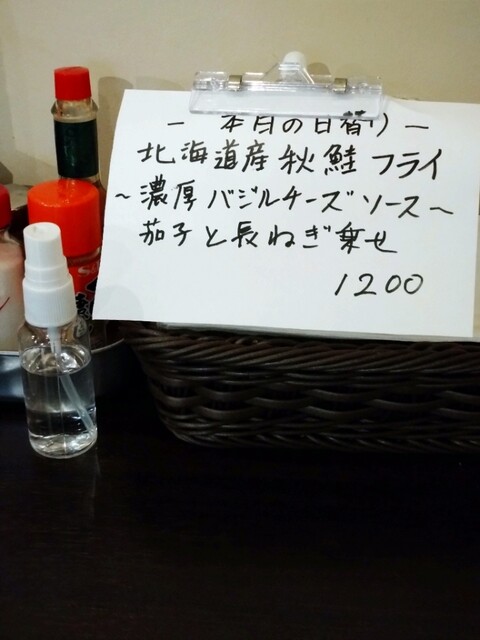 ― 本日の日替り ―
北海道産秋鮭フライ
~濃厚バジルチーズソース~
茄子と長ねぎ乗せ
1200